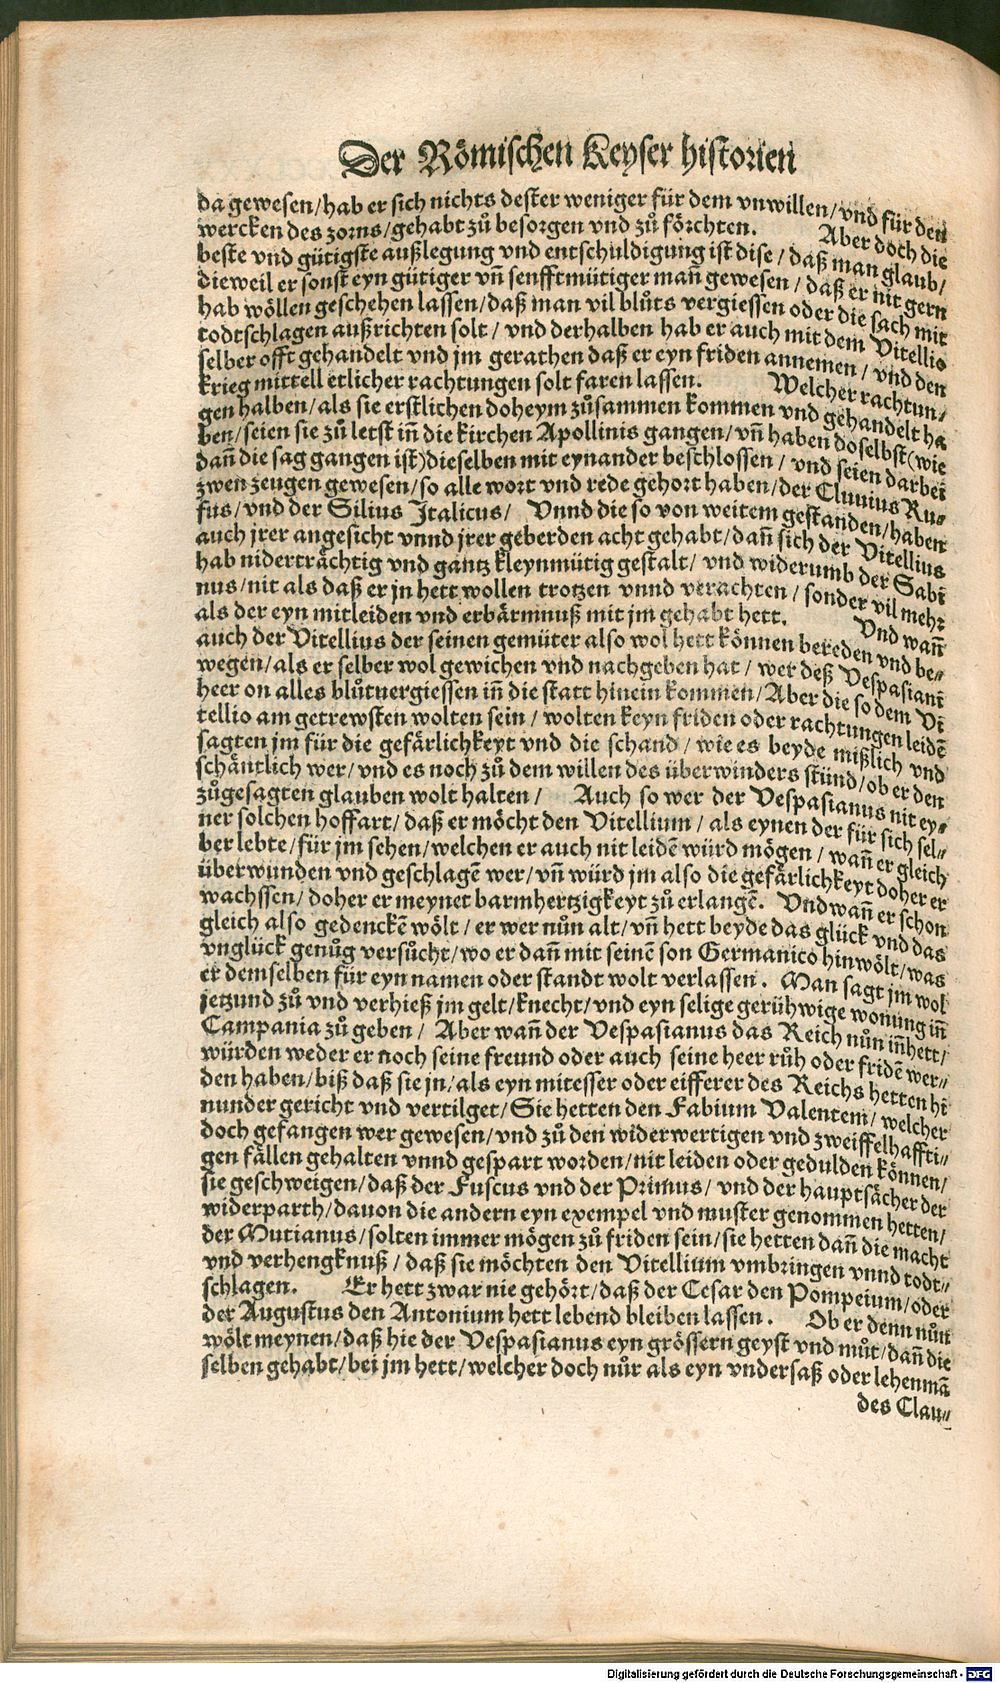 Der Römischen Keyser historien
da gewesen/hab er sich nichts dester weniger für dem vnwillen/vnd für den
wercken des zorns/gehabt zů besorgen vnd zů förchten. Aber doch die
beste vnd gütigste außlegung vnd entschuldigung ist dise/daß man glaub/
dieweil er sonst eyn gütiger vñ senfftmütiger mañ gewesen/daß er nit gern
hab wöllen geschehen lassen/daß man vil blůts vergiessen oder die sach mit
todtschlagen außrichten solt/vnd derhalben hab er auch mit dem Vitellio
selber offt gehandelt vnd jm gerathen daß er eyn friden annemen/vnd den
krieg mittell etlicher rachtungen solt faren lassen. Welcher rachtun⸗
gen halben/als sie erstlichen doheym zůsammen kommen vnd gehandelt ha
ben/seien sie zů letst iñ die kirchen Apollinis gangen/vñ haben doselbst(wie
dañ die sag gangen ist)dieselben mit eynander beschlossen/vnd seien darbei
zwen zeugen gewesen/so alle wort vnd rede gehort haben/der Cluuius Ru⸗
fus/vnd der Silius Italicus/ Vnnd die so von weitem gestanden/haben
auch jrer angesicht vnnd jrer geberden acht gehabt/dañ sich der Vitellius
hab niderträchtig vnd gantz kleynmütig gestalt/vnd widerumb der Sabi
nus/nit als daß er jn hett wollen trotzen vnnd verachten/sonder vil mehr
als der eyn mitleiden vnd erbärmnuß mit jm gehabt hett. Vnd wañ
auch der Vitellius der seinen gemüter also wol hett können bereden vnd be⸗
wegen/als er selber wol gewichen vnd nachgeben hat/wer deß Vespasiani
heer on alles blůtuergiessen iñ die statt hinein kommen/Aber die so dem Vi
tellio am getrewsten wolten sein/wolten keyn friden oder rachtungen leidē
sagten jm für die gefärlichkeyt vnd die schand/wie es beyde mißlich vnd
schäntlich wer/vnd es noch zů dem willen des überwinders stünd/ob er den
zůgesagten glauben wolt halten/ Auch so wer der Vespasianus nit ey⸗
ner solchen hoffart/daß er möcht den Vitellium/als eynen der für sich sel⸗
ber lebte/für jm sehen/welchen er auch nit leidē würd mögen/wañ er gleich
überwunden vnd geschlagē wer/vñ würd jm also die gefärlichkeyt doher er
wachssen/doher er meynet barmhertzigkeyt zů erlangē. Vnd wañ er schon
gleich also gedenckē wölt/er wer nůn alt/vñ hett beyde das glück vnd das
vnglück genůg versůcht/wo er dañ mit seinē son Germanico hin wölt/was
er demselben für eyn namen oder standt wolt verlassen. Man sagt jm wol
jetzund zů vnd verhieß jm gelt/knecht/vnd eyn selige gerühwige wonung iñ
Campania zů geben/ Aber wañ der Vespasianus das Reich nůn iñhett/
würden weder er noch seine freund oder auch seine heer růh oder fridē wer⸗
den haben/biß daß sie jn/als eyn mitesser oder eifferer des Reichs hetten hi
nunder gericht vnd vertilget/Sie hetten den Fabium Valentem/welcher
doch gefangen wer gewesen/vnd zů den widerwertigen vnd zweiffelhaffti⸗
gen fällen gehalten vnnd gespart worden/nit leiden oder gedulden können/
sie geschweigen/daß der Fuscus vnd der Primus/vnd der hauptsächer der
widerparth/dauon die andern eyn exempel vnd muster genommen hetten/
der Mutianus/solten immer mögen zů friden sein/sie hetten dañ die macht
vnd verhengknuß/daß sie möchten den Vitellium vmbringen vnnd todt⸗
schlagen. Er hett zwar nie gehört/daß der Cesar den Pompeium/oder
der Augustus den Antonium hett lebend bleiben lassen. Ob er denn nůn
wölt meynen/daß hie der Vespasianus eyn grössern geyst vnd můt/dañ die
selben gehabt/bei jm hett/welcher doch nůr als eyn vndersaß oder lehenmā
des Clau⸗
Digitalisierung gefördert durch die Deutsche Forschungsgemeinschaft - DFG